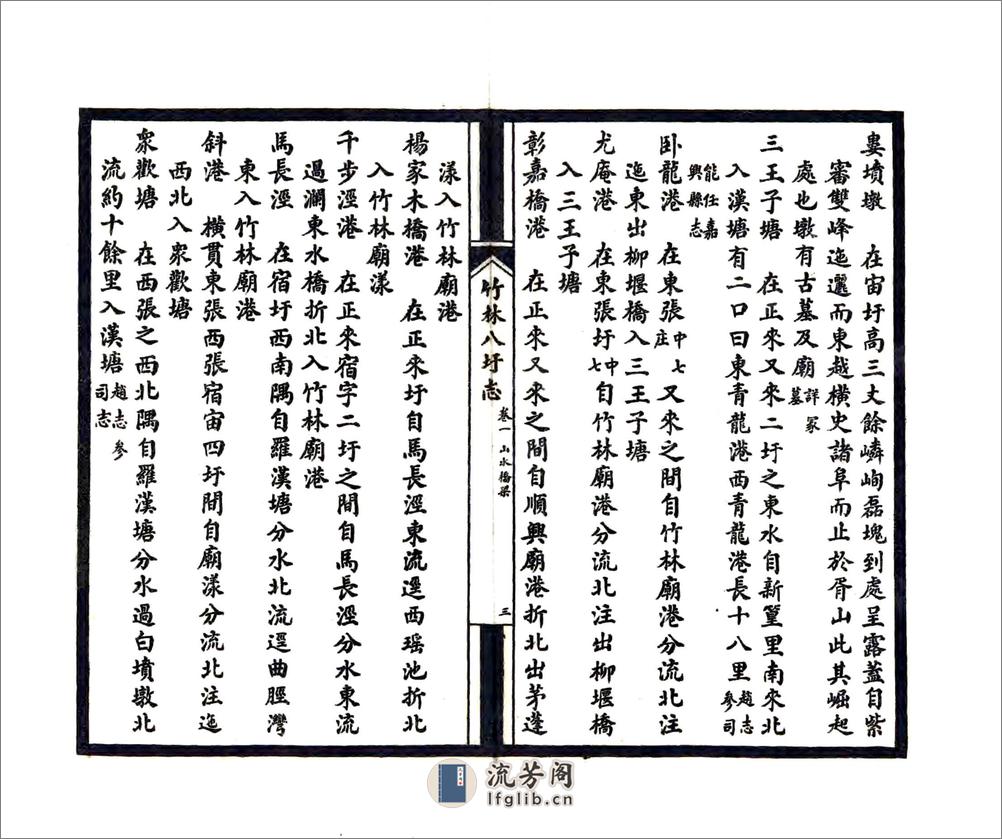 婁墳墩　在宙圩高三丈餘嶙峋磊塊到處呈露蓋自紫
審雙峰迤邐而東越橫史諸阜而止於胥山此其崛起
處也墩有古墓及廟詳冢墓
三王子塘　在正來又來二圩之東水自新篁里南來北
入漢塘有二口曰東青龍港西青龍港長十八里趙志參司
能任嘉興縣志
卧龍港　在東張中七庄又來之間自竹林廟港分流北注
迤東出柳堰橋入三王子塘
尤庵港　在東張圩中七自竹林廟港分流北注出柳堰橋
入三王子塘
彰嘉橋港　在正來又來之間自順興廟港折北出茅蓬
竹林八圩志　卷一　山水橋梁　三
漾入竹林廟港
楊家木橋港　在正來圩自馬長涇東流逕西瑶池折北
入竹林廟漾
千步涇港　在正來宿字二圩之間自馬長涇分水東流
過瀾東水橋折北入竹林廟港
馬長涇　在宿圩西南隅自羅漢塘分水北流逕曲脛灣
東入竹林廟港
斜港　橫貫東張西張宿宙四圩間自廟漾分流北注迤
西北入衆歡塘
衆歡塘　在西張之西北隅自羅漢塘分水過白墳墩北
流約十餘里入漢塘趙志參司志
流芳阁
lfglib.cn